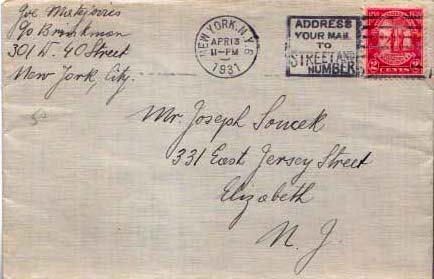 Joe
c/o Brinkman
301 W. 40 Street
New York, City.
NEW YORK, N.Y.
APR 13
11-PM
1931
ADDRESS
YOUR MAIL
TO
STREET AND
NUMBER
2 CENTS 2
Mr. Joseph Soucek
331 East Jersey Street
Elizabeth
N. J.